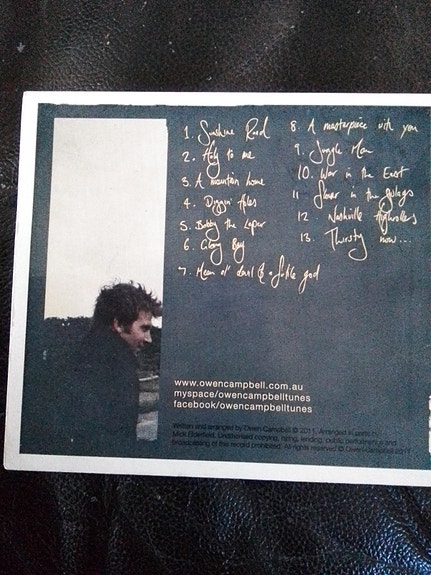 1. Sunshine Road
2. Holy to me
3. A mountain home
4. Diggin' holes
5. Bobby the
6. Glory Bay
7. Mean ol' devil & a fickle god
8. A masterpiece with you
9. Jungle Man
10. War in the East
11. in the
12. Nashville Highrollers
13. Thirsty now...
www.owencampbell.com.au
myspace/owencampbelltunes
facebook/owencampbelltunes
Written and arranged by Owen Campbell © 2011. Arranged in part by
Mick Elderfield. Unauthorised copying, hiring, lending, public performance and
broadcasting of this record prohibited. All rights reserved © Owen Campbell 2011